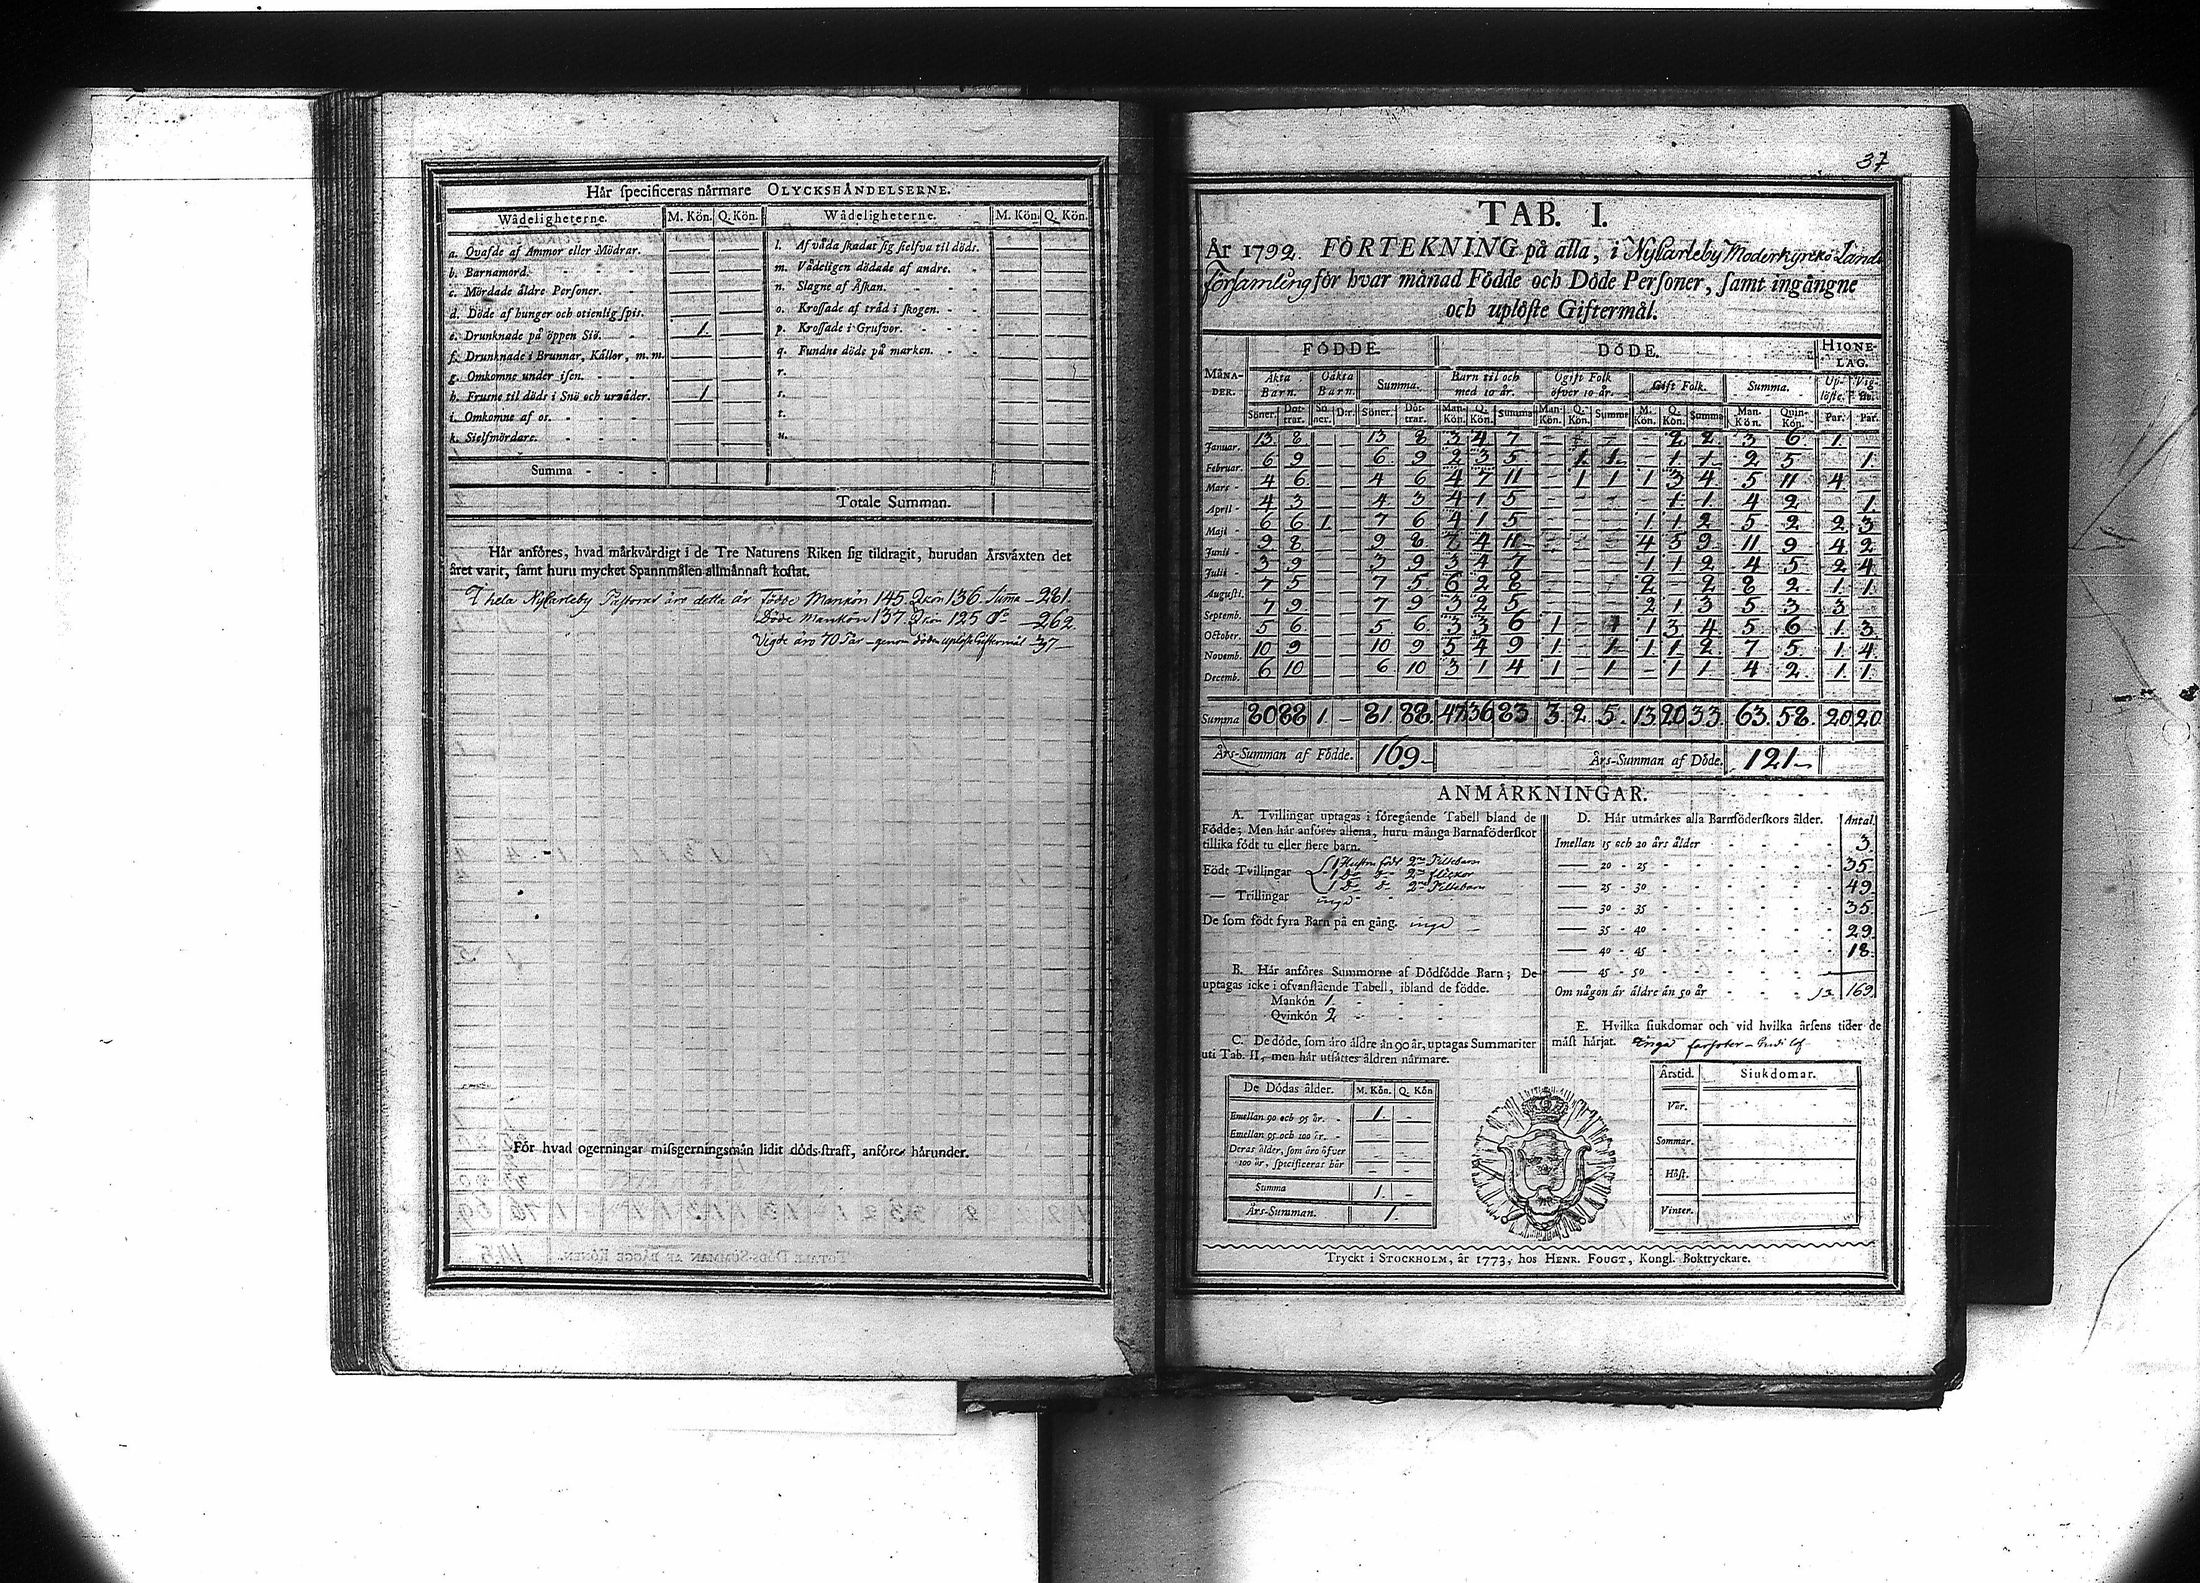 Hår specificeras nårmare OLYCKSHÅNDELSERNE.
Wådeligheterne. M. Kön. Q. Kön. Wådeligheterne. M. Kön. Q. Kön.
a. Qvafde af Ammor eller Mödrar. — — l. Af våda skadat sig sielfva til döds. — —
b. Barnamord. — — m. Vådeligen dödade af andre. — —
c. Mördade åldre Personer. — — n. Slagne af Åskan. — —
d. Döde af hunger och otienlig spis. — — o. Krossade af tråd i skogen. — —
e. Drunknade på öppen Siö. 1 — p. Krossade i Grufvor. — —
f. Drunknade i Brunnar, Kållor, m.m. — — q. Fundne döde på marken. — —
g. Omkomne under isen. — — r.
h. Frusne til döds i Snö och urvåder. 1 — s.
i. Omkomne af os. — — t.
k. Sielfmördare. — — u.
Summa
Totale Summan.
Hår anföres, hvad mårkvårdigt i de Tre Naturens Riken sig tildragit, hurudan Årsvåxten det
året varit, samt huru mycket Spannmålen allmånnast kostat.
I hela NyCarleby Pastorat äro detta år födde Mankön 145 Qkön 136 Suma — 281.
Döde Mankön 137 Qkön 125 — 262
Vigde äro 70 Par — genom döden uplöste Giftermål 37 —
För hvad ogerningar missgerningsmån lidit döds-straff, anföres hårunder.
37
TAB. I.
År 1792. FÖRTEKNING på alla, i NyCarleby Moderkyrcko Lands
församling för hvar månad Födde och Döde Personer, samt ingångne
och uplöste Giftermål.
MÅNADER. FÖDDE. DÖDE. HIONELAG.
Äkta Barn. Oäkta Barn. Summa. Barn til och med 10 år. Ogift Folk öfver 10 år. Gift Folk. Summa. Uplöste. Vigde.
Söner. Döttrar. Söner. D:r. Söner. Döttrar. Man-Kön. Q. Kön. Summa Man-Kön. Q. Kön. Summa M. Kön. Q. Kön. Summa Man-Kön. Quin-Kön. Par. Par.
Januar. 13 8 — — 13 8 3 4 7 — — — — 2 2 3 6 1.
Februar. 6 9 — — 6 9 2 3 5 — 1 1 — 1 1 2 5 1.
Mars 4 6 — — 4 6 4 7 11 — 1 1 1 3 4 5 11 4
April 4 3 — — 4 3 4 1 5 — — — — 1 1 4 2 1.
Maji 6 6 1 — 7 6 4 1 5 — — — 1 1 2 5 2 2 3
Junii 9 8 — — 9 8 7 4 11 — — — 4 5 9 11 9 4 2
Julii 3 9 — — 3 9 3 4 7 — — — 1 1 2 4 5 2 4
Augusti. 7 5 — — 7 5 6 2 8 — — — 2 — 2 8 2 1. 1.
Septemb. 7 9 — — 7 9 3 2 5 — — — 2 1 3 5 3 3
October. 5 6 — — 5 6 3 3 6 1 — 1 1 3 4 5 6 1. 3.
Novemb. 10 9 — — 10 9 5 4 9 1 — 1 1 1 2 7 5 1. 4
Decemb. 6 10 — — 6 10 3 1 4 1 — 1 — 1 1 4 2 1. 1.
Summa 80 88 1 — 81 88 47 36 83 3 2 5 13 20 33 63 58 20 20
Års-Summan af Födde. 169 Års-Summan af Döde. 121
ANMÅRKNINGAR.
A. Tvillingar uptagas i föregående Tabell bland de
Födde; Men hår anföres allena, huru många Barnaföderskor
tillika födt tu eller flere barn.
Födt Tvillingar 1 Hustru födt 2
1 2 flickor
1 2
— Trillingar inga
De som födt fyra Barn på en gång. inga
B. Hår anföres Summorne af Dödfödde Barn; De
uptagas icke i ofvanstående Tabell, ibland de födde.
Mankön 1
Qvinkön 2
C. De döde, som åro åldre ån 90 år, uptagas Summariter
uti Tab. II, men hår utsåttes åldren nårmare.
De Dödas ålder. M. Kön. Q. Kön
Emellan 90 och 95 år. 1. —
Emellan 95 och 100 år. — —
Deras ålder, som åro öfver
100 år, specificeras hår — —
Summa 1. —
Års-Summan. 1.
D. Hår utmårkes alla Barnföderskors ålder. Antal.
Imellan 15 och 20 års ålder 3.
— 20 - 25 35.
— 25 - 30 49.
— 30 - 35 35.
— 35 - 40 29.
— 40 - 45 18.
— 45 - 50 —
Om någon är åldre ån 50 år 169
E. Hvilka siukdomar och vid hvilka årsens tider de
måst hårjat. Inga farsoter
Årstid. Siukdomar.
Vår.
Sommar.
Höst.
Vinter.
Tryckt i STOCKHOLM, år 1773, hos HENR. FOUGT, Kongl. Boktryckare.